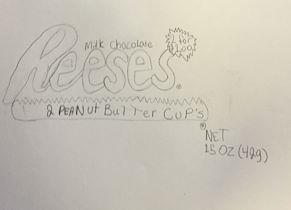 Milk Chocolate
2 for
$1.00
Reeses®
2 PEANut ButTer CuP's®
NET
1.5 OZ (42g)